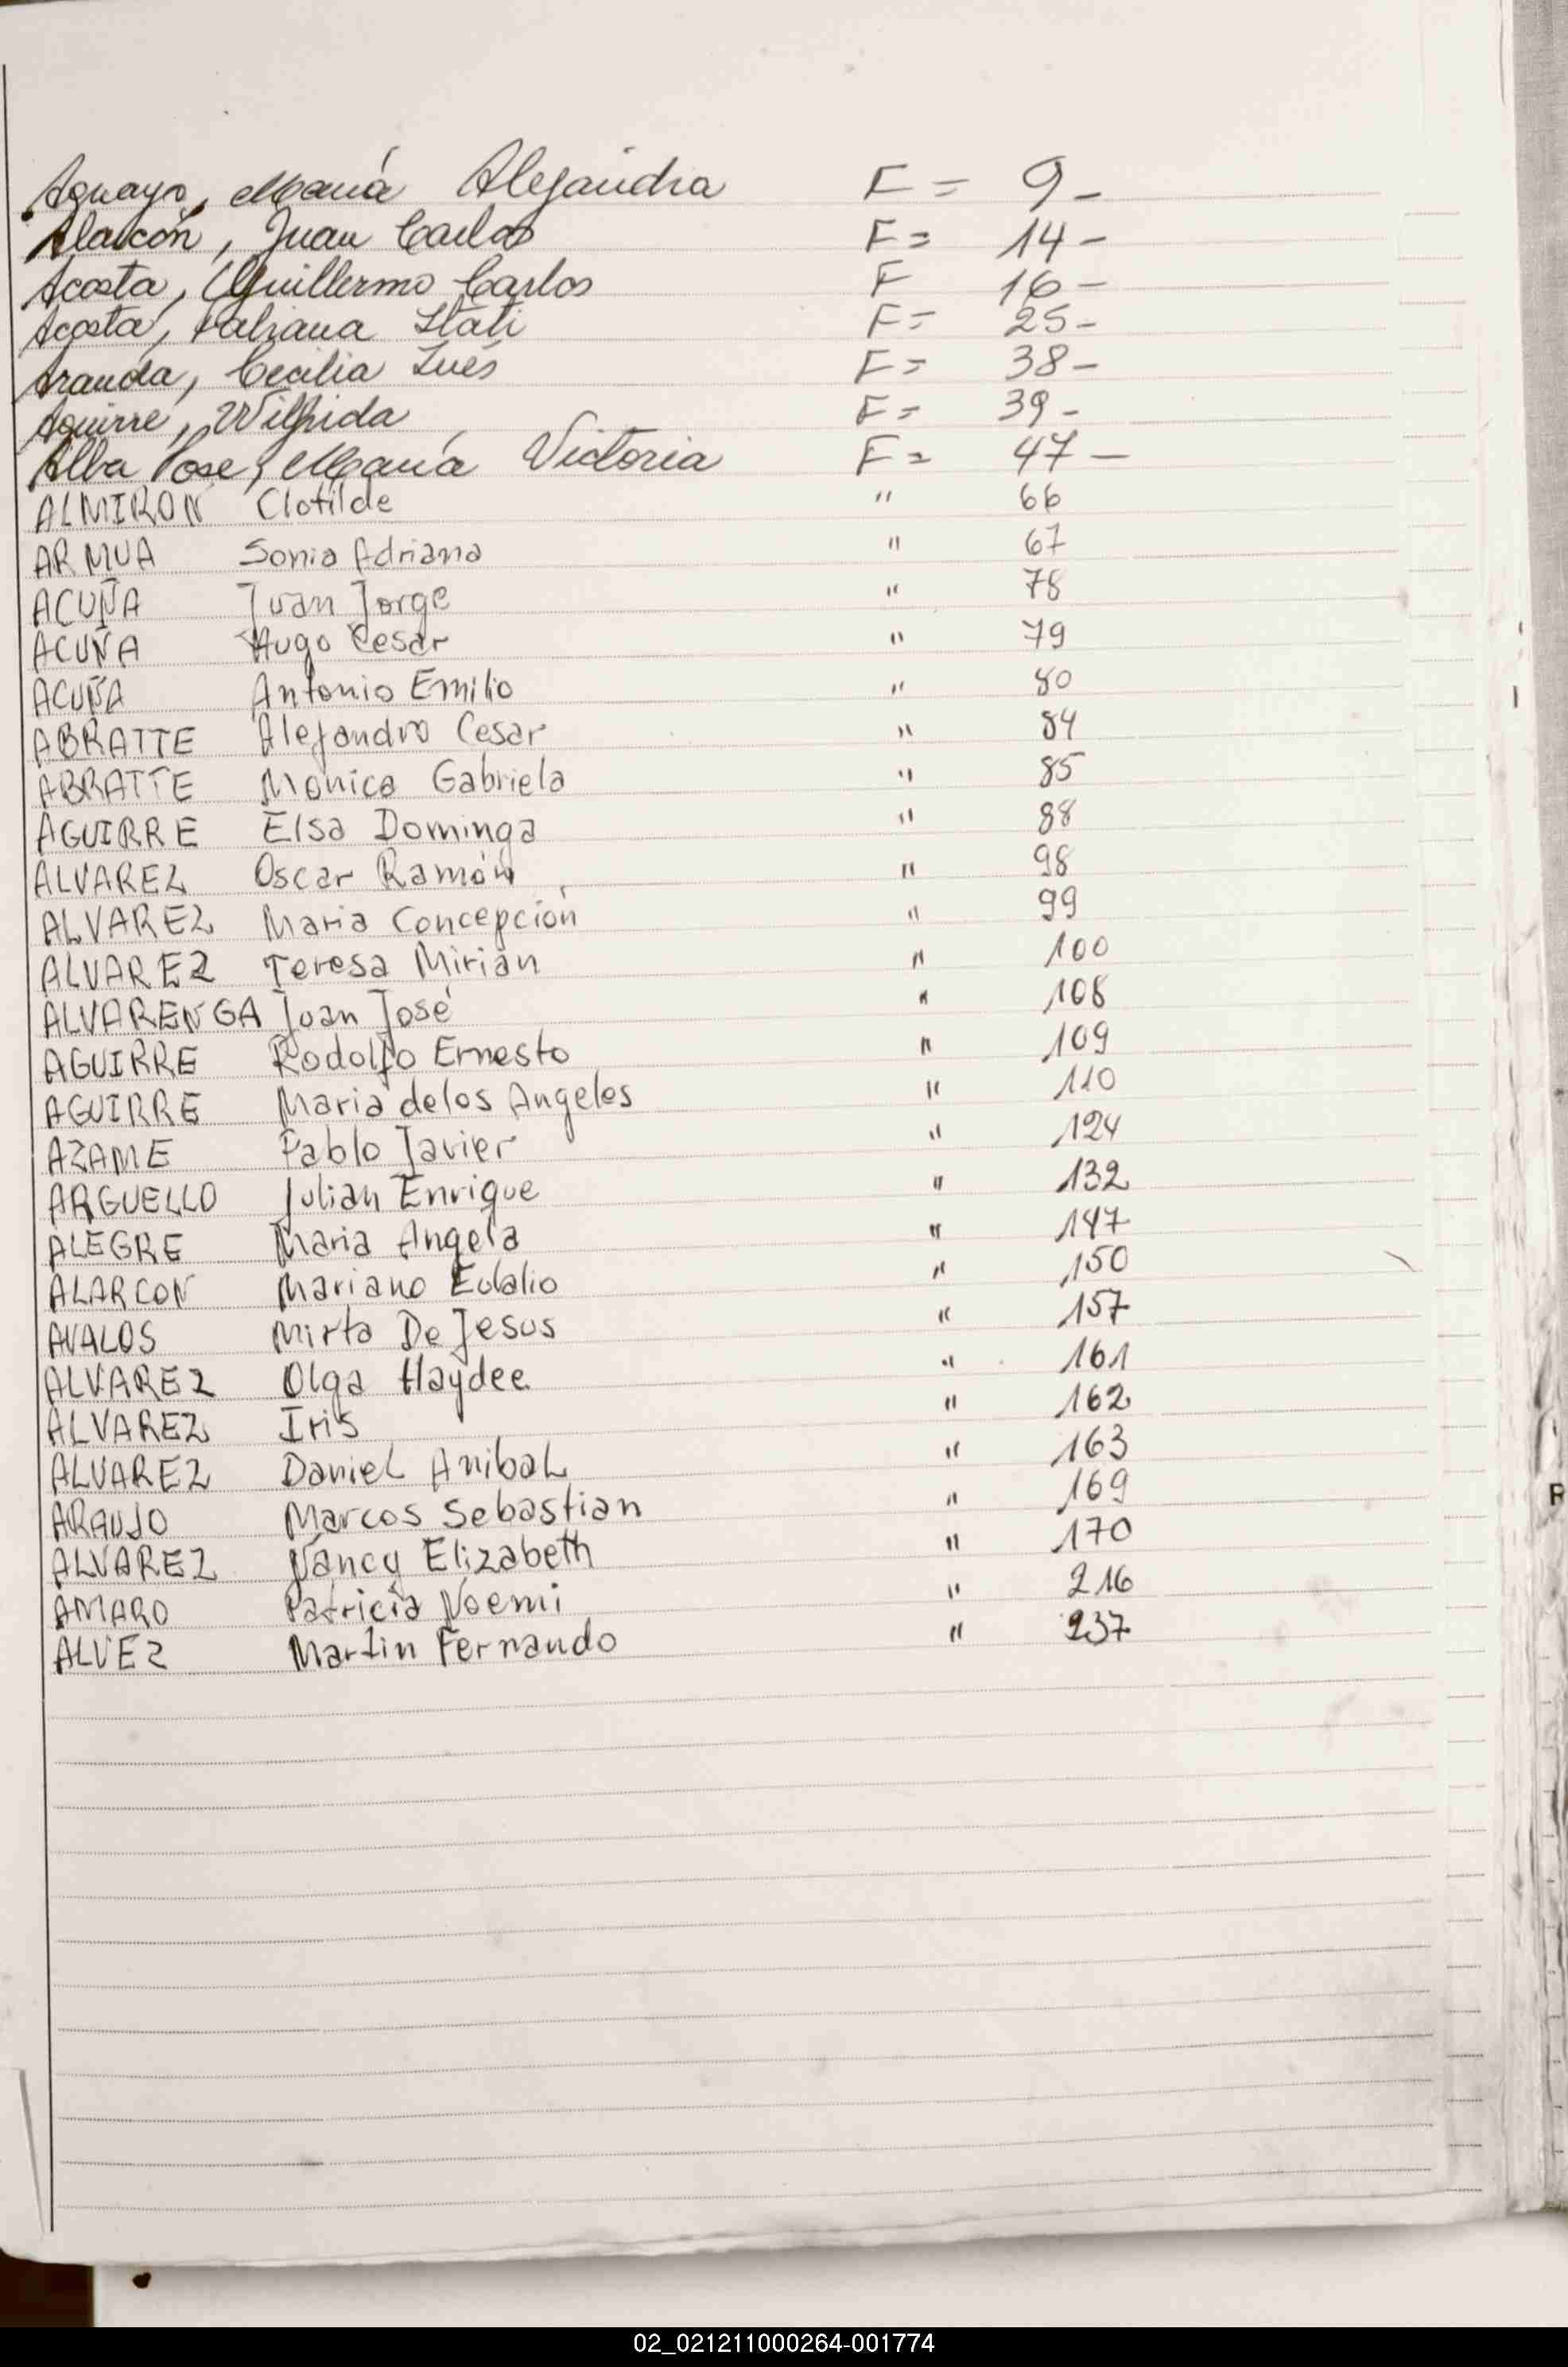 Aguayo, María Alejandra F = 9-
Alarcón, Juan Carlos F= 14-
Acosta, Guillermo Carlos F 16-
Acosta, Fabiana Itati F= 25-
Aranda, Cecilia Inés F= 38-
Aguirre, Wilfrida F= 39-
Alba Pose, María Victoria F= 47-
ALMIRON Clotilde " 66
ARMUA Sonia Adriana " 67
ACUÑA Juan Jorge " 78
ACUÑA Hugo Cesar " 79
ACUÑA Antonio Emilio " 80
ABRATTE Alejandro Cesar " 84
ABRATTE Monica Gabriela " 85
AGUIRRE Elsa Dominga " 88
ALVAREZ Oscar Ramón " 98
ALVAREZ Maria Concepción " 99
ALVAREZ Teresa Mirian " 100
ALVARENGA Juan José " 108
AGUIRRE Rodolfo Ernesto " 109
AGUIRRE Maria de los Angeles " 110
AZAME Pablo Javier " 124
ARGUELLO Julian Enrique " 132
ALEGRE Maria Angela " 147
ALARCON Mariano Eulalio " 150
AVALOS Mirta De Jesus " 157
ALVAREZ Olga Haydee " 161
ALVAREZ Iris " 162
ALVAREZ Daniel Anibal " 163
ARAUJO Marcos Sebastian " 169
ALVAREZ Nancy Elizabeth " 170
AMARO Patricia Noemi " 216
ALVEZ Martin Fernando " 237
02_021211000264-001774